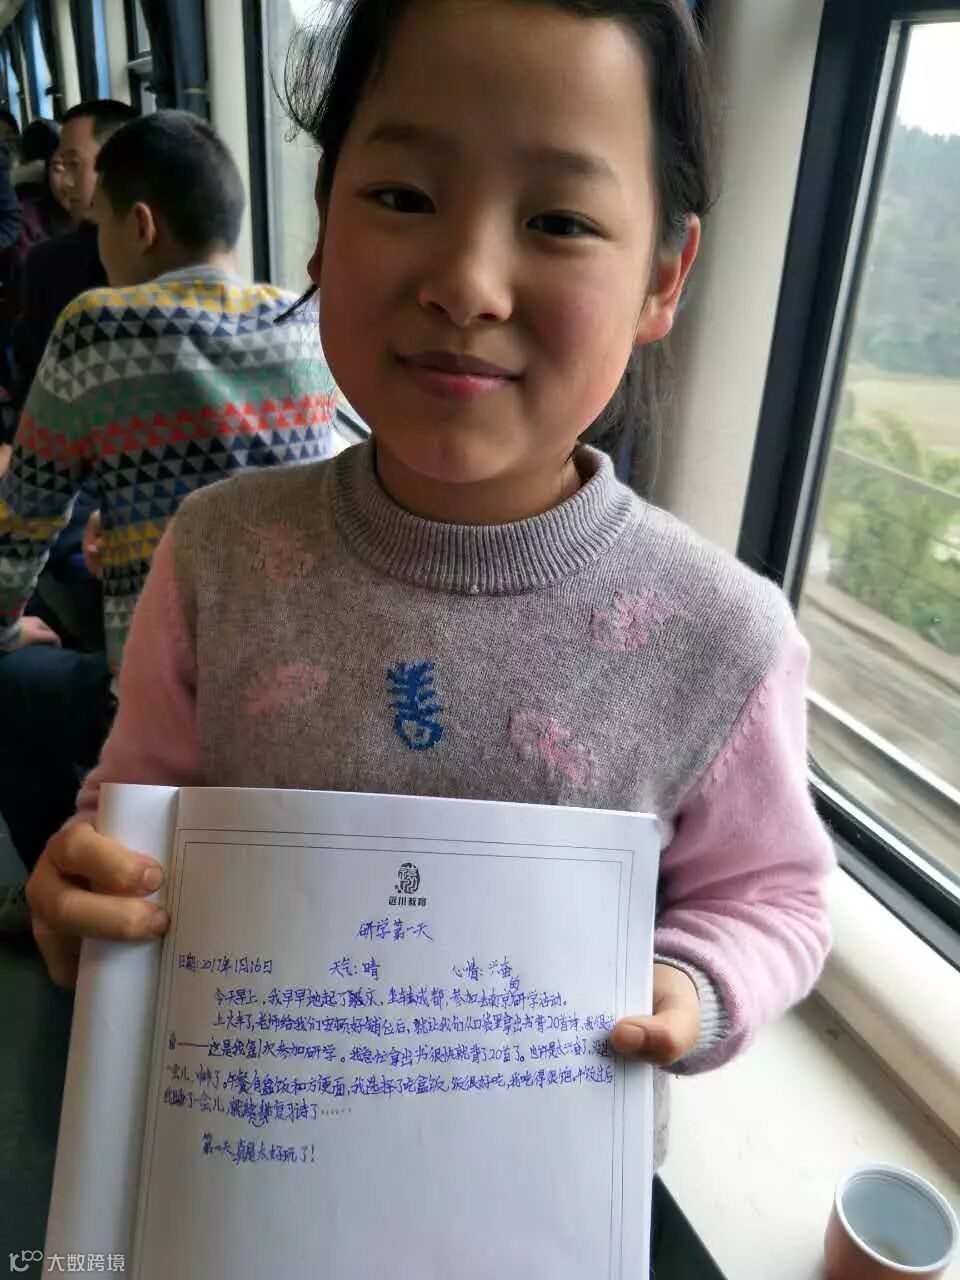 远川教育
研学第一天
日期:2017年1月16日 天气:晴 心情:兴奋的
今天早上,我早早地起了床,坐车去成都,参加去南京研学活动。
上火车了,老师给我们安顿好铺位后,就让我们从口袋里拿出书背20首诗,我很
——这是我第1次参加研学。我急忙拿出书很快就背了20首了。也许是太兴奋了,没过
一会儿,中午了。午餐有盒饭和方便面,我选择了吃盒饭,饭很好吃,我吃得很饱,午饭过后
我睡了一会儿,就继续复习诗了……
第一天真是太好玩了!
大数跨境